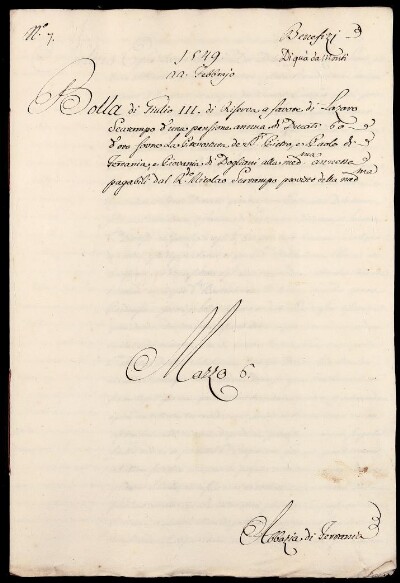 N.º 7.
Benefizi
Di quà da Monti
1549
22 Febbrajo
Bolla di Giulio III. di Riserva a favore di Lazaro
Scarampo d'una pensione annua di Ducati 60
d'oro sovra La Prevostura de S.ti Pietro, e Paolo di
Ferrania, e Pievania di Dogliani alla med.ma annesse
pagabili dal R.do Nicolao Scarampo provisto della med.ma
Mazzo 6.
Abbazia di Ferrania